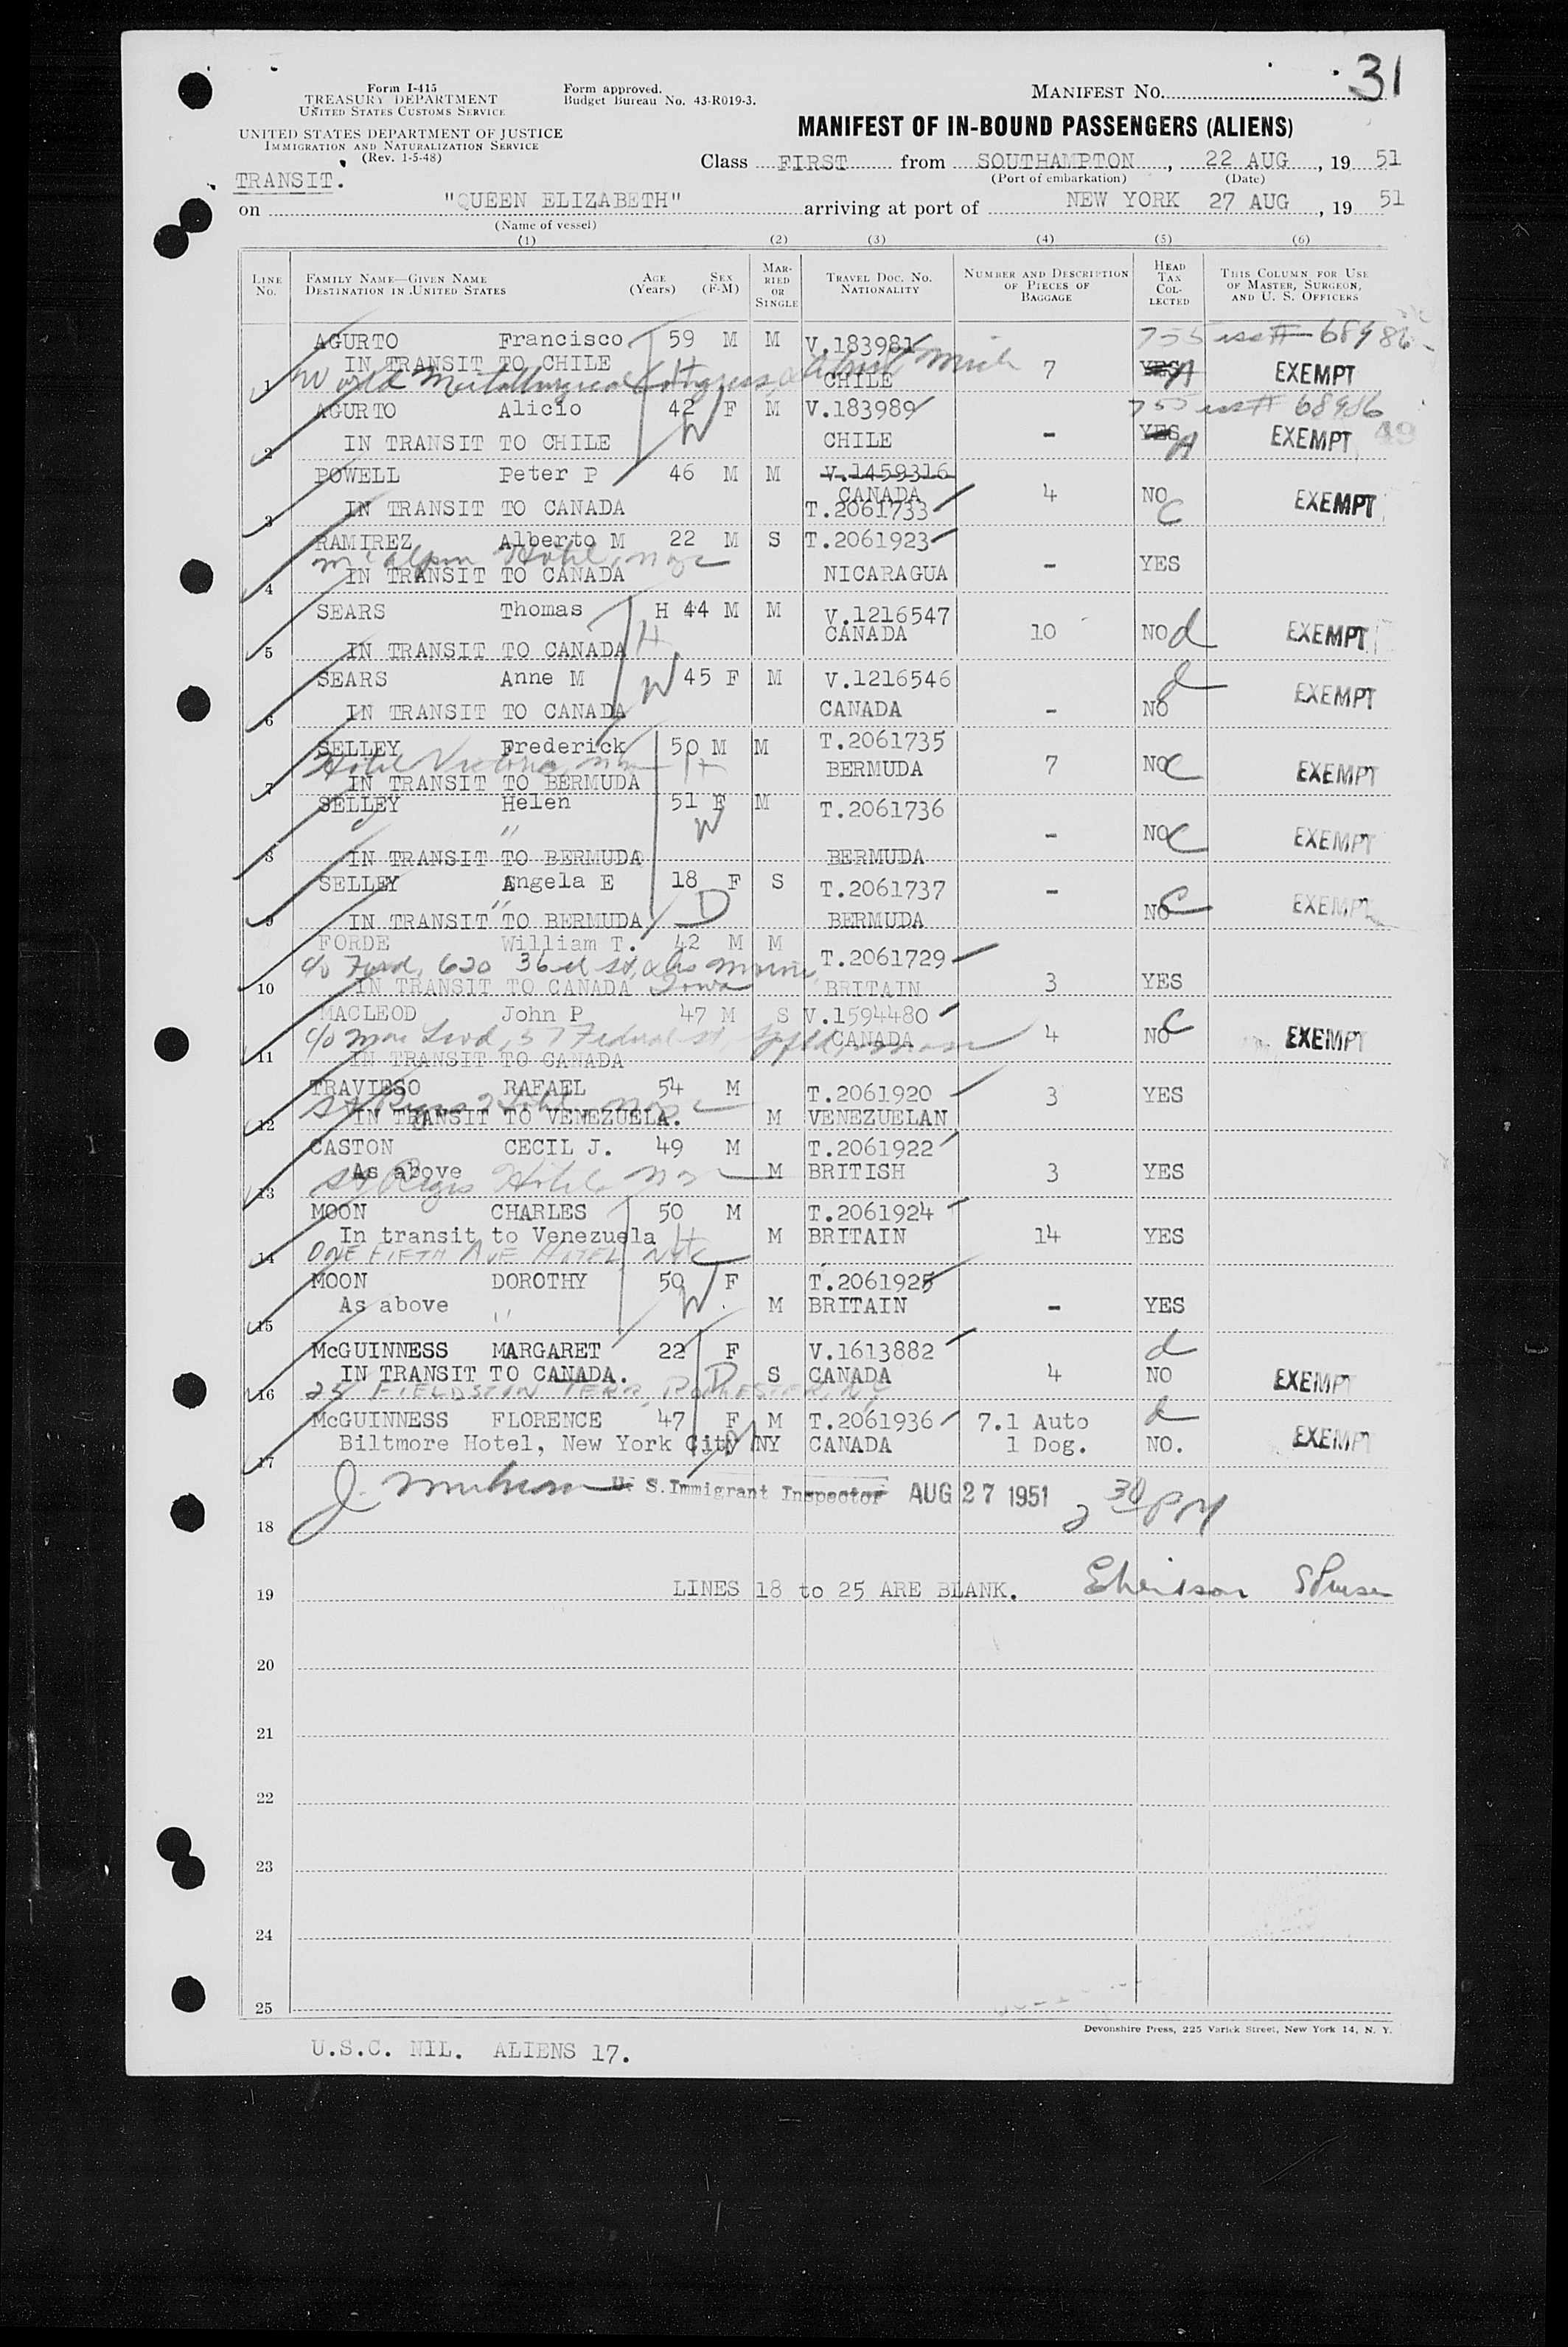 31
Form I-415
TREASURY DEPARTMENT
UNITED STATES CUSTOMS SERVICE
Form approved.
Budget Bureau No. 43-R019-3.
MANIFEST No.
UNITED STATES DEPARTMENT OF JUSTICE
IMMIGRATION AND NATURALIZATION SERVICE
(Rev. 1-5-48)
MANIFEST OF IN-BOUND PASSENGERS (ALIENS)
Class FIRST from SOUTHAMPTON, 22 AUG, 19 51
(Port of embarkation) (Date)
TRANSIT.
on "QUEEN ELIZABETH" arriving at port of NEW YORK 27 AUG, 19 51
(Name of vessel)
(1) (2) (3) (4) (5) (6)
LINE No.
FAMILY NAME—GIVEN NAME
DESTINATION IN UNITED STATES
AGE (Years)
SEX (F-M)
MARRIED OR SINGLE
TRAVEL DOC. NO. NATIONALITY
NUMBER AND DESCRIPTION OF PIECES OF BAGGAGE
HEAD TAX COLLECTED
THIS COLUMN FOR USE OF MASTER, SURGEON, AND U. S. OFFICERS
AGURTO Francisco 59 M M V.183981 68986
IN TRANSIT TO CHILE H
1 World Metallurgical Congress, Detroit Mich CHILE 7 YES A EXEMPT
AGURTO Alicio 42 F M V.183989 68986
2 IN TRANSIT TO CHILE W CHILE - YES A EXEMPT 49
POWELL Peter P 46 M M V.1459316
CANADA 4 NO C EXEMPT
3 IN TRANSIT TO CANADA T.2061733
RAMIREZ Alberto M 22 M S T.2061923
McAlpin Hotel, NYC - YES
4 IN TRANSIT TO CANADA NICARAGUA
SEARS Thomas H 44 M M V.1216547
CANADA 10 NO d EXEMPT
5 IN TRANSIT TO CANADA H
SEARS Anne M W 45 F M V.1216546 d
6 IN TRANSIT TO CANADA CANADA - NO EXEMPT
SELLEY Frederick 50 M M T.2061735
Hotel Victoria, H BERMUDA 7 NO C EXEMPT
7 IN TRANSIT TO BERMUDA
SELLEY Helen 51 F M T.2061736
" W - NO C EXEMPT
8 IN TRANSIT TO BERMUDA BERMUDA
SELLEY Angela E 18 F S T.2061737 -
" D NO C EXEMPT
9 IN TRANSIT TO BERMUDA BERMUDA
FORDE William T. 42 M M T.2061729
c/o Ford, 620 36th St, Des Moines,
10 IN TRANSIT TO CANADA Iowa BRITAIN 3 YES
MACLEOD John P 47 M S V.1594480 C
c/o 57 Federal St, CANADA 4 NO EXEMPT
11 IN TRANSIT TO CANADA
TRAVIESO RAFAEL 54 M T.2061920 3 YES
St Regis Hotel NYC
12 IN TRANSIT TO VENEZUELA. M VENEZUELAN
CASTON CECIL J. 49 M T.2061922
As above M BRITISH 3 YES
13 St Regis Hotel
MOON CHARLES 50 M T.2061924
In transit to Venezuela H M BRITAIN 14 YES
14 ONE FIFTH AVE HOTEL NYC
MOON DOROTHY 50 F T.2061925
15 As above " W. M BRITAIN - YES
McGUINNESS MARGARET 22 F V.1613882 d
IN TRANSIT TO CANADA. D S CANADA 4 NO EXEMPT
16 25 FIELDSTON TERR, ROCHESTER, NY
McGUINNESS FLORENCE 47 F M T.2061936 7.1 Auto d
17 Biltmore Hotel, New York City NY CANADA 1 Dog. NO. EXEMPT
U. S. Immigrant Inspector AUG 27 1951 2 30 PM
18
19 LINES 18 to 25 ARE BLANK.
20
21
22
23
24
25
Devonshire Press, 225 Varick Street, New York 14, N. Y.
U.S.C. NIL. ALIENS 17.